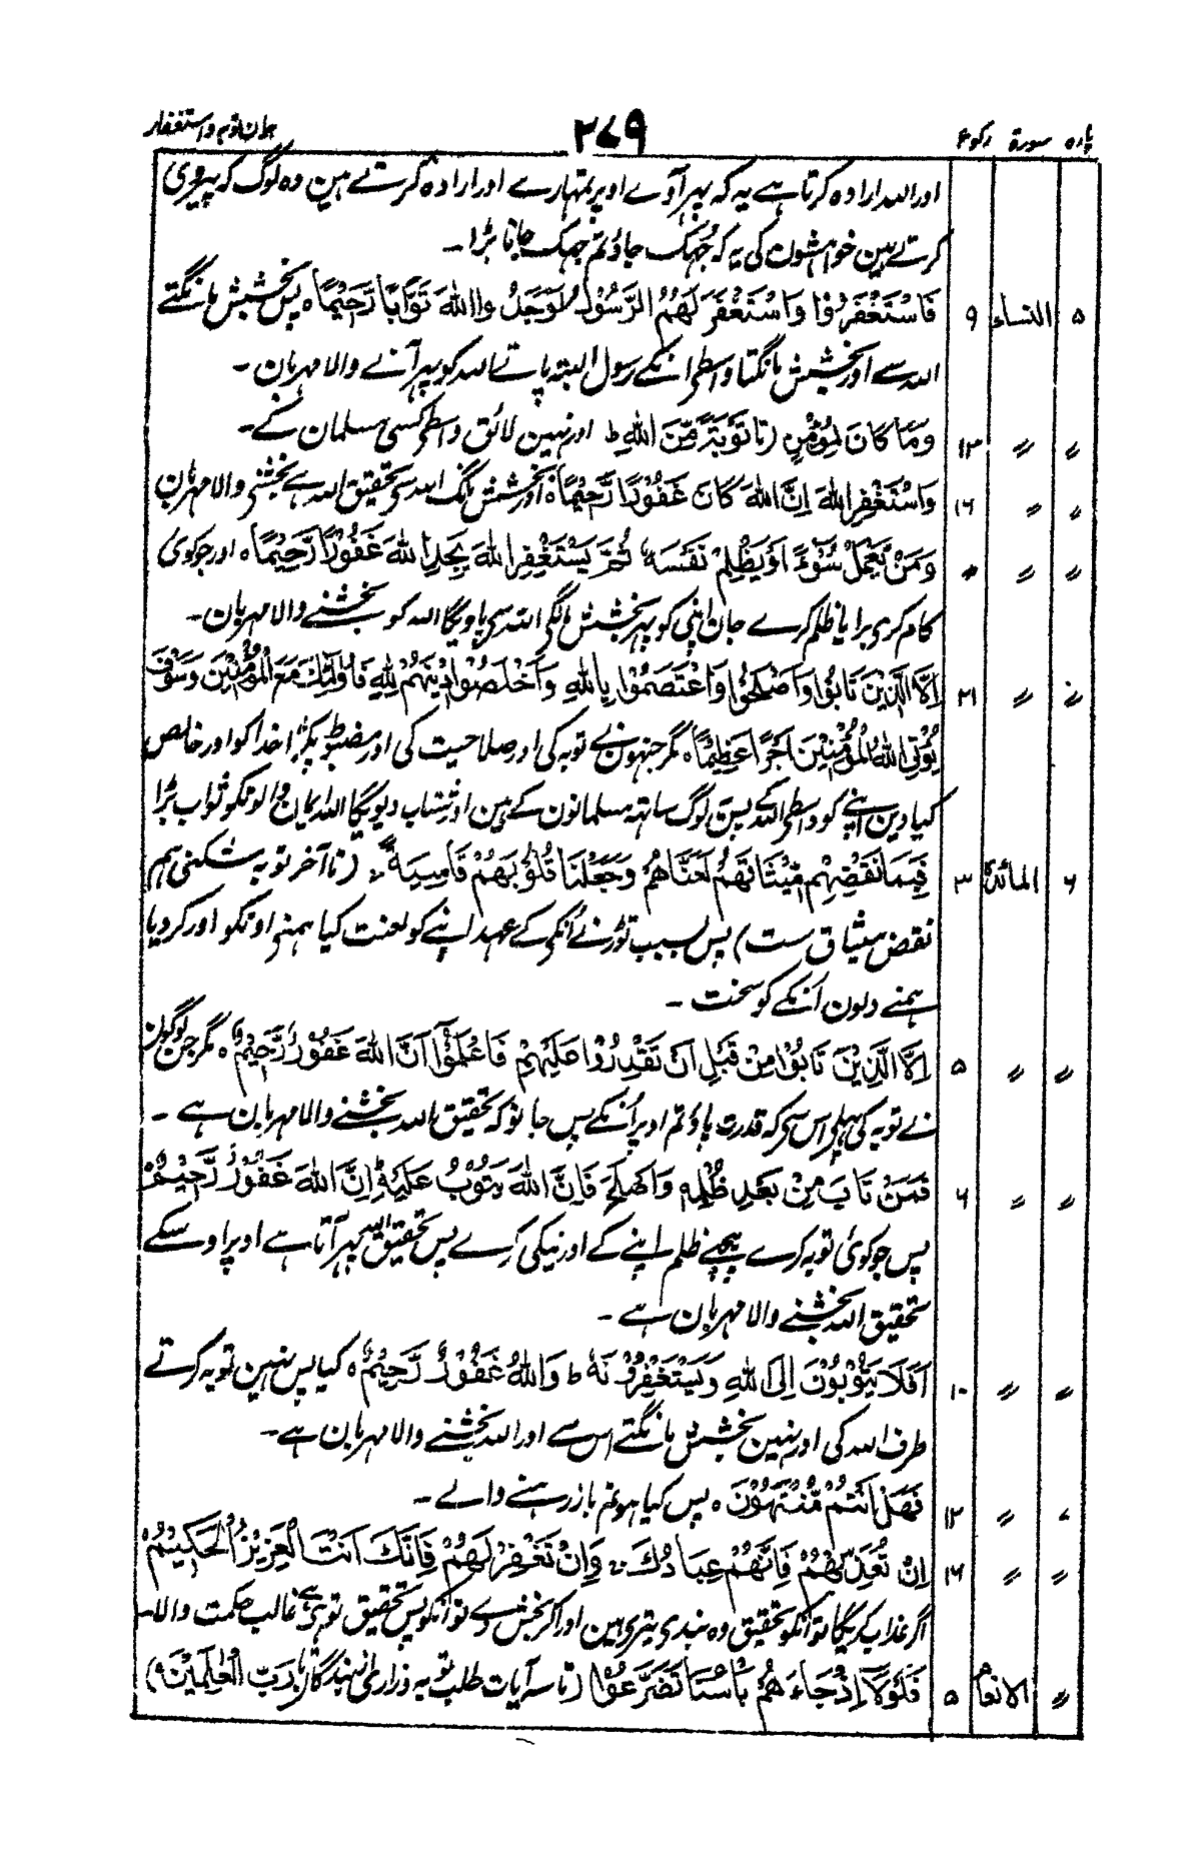 پارہ سورۃ رکوع ۲۷۹ بیان توبہ و استغفار
اور اللہ ارادہ کرتا ہے یہ کہ پہر آوے اوپر تمہارے اور ارادہ کرتے ہین وہ لوگ کہ پیروی
کرتے ہین خواہشون کی یہ کہ جُہک جاؤ تم جہک جانا بڑا۔
۵ النساء ۹ فَاسْتَغْفَرُوا وَاسْتَغْفَرَ لَهُمُ الرَّسُوْلُ لَوَجَدُوااللهَ تَوَّابًا رَّحِيْمًا ہ پس بخشش مانگتے
اللہ سے اور بخشش مانگتا واسطے انکے رسول البتہ پاتے اللہ کو پہر آنے والا مہربان۔
〃 〃 ۱۳ وَمَا كَانَ لِمُؤْمِنٍ (تا تَوْبَةً مِّنَ اللهِ ط اور نہین لائق واسطے کسی مسلمان کے۔
〃 〃 ۱۶ وَاسْتَغْفِرِ اللهَ اِنَّ اللهَ كَانَ غَفُوْرًا رَّحِيْمًا ہ اور بخشش مانگ اللہ سے تحقیق اللہ ہے بخشنے والا مہربان
〃 〃 〃 وَمَنْ يَّعْمَلْ سُوْٓءًا اَوْ يَظْلِمْ نَفْسَهٗ ثُمَّ يَسْتَغْفِرِ اللهَ يَجِدِ اللهَ غَفُوْرًا رَّحِيْمًا ہ اور جو کوی
کام کری برا یا ظلم کرے جان اپنی کو پہر بخشش مانگی اللہ سی پاویگا اللہ کو بخشنے والا مہربان۔
〃 〃 ۲۱ اِلَّا الَّذِيْنَ تَابُوْا وَاَصْلَحُوْا وَاعْتَصَمُوْا بِاللهِ وَاَخْلَصُوْا دِيْنَهُمْ لِلهِ فَاُولٰٓئِكَ مَعَ الْمُؤْمِنِيْنَ وَسَوْفَ
يُؤْتِي اللهُ الْمُؤْمِنِيْنَ اَجْرًا عَظِيْمًا ہ مگر جنہون نے توبہ کی اور صلاحیت کی اور مضبوط پکڑا خدا کو اور خالص
کیا دین اپنے کو واسطے اللہ کے پس یہ لوگ ساتہہ مسلمانون کے ہین اور شتاب دیویگا اللہ ایمان والونکو ثواب بڑا
۶ المائدۃ ۳ فَبِمَا نَقْضِهِمْ مِّيْثَاقَهُمْ لَعَنَّاهُمْ وَجَعَلْنَا قُلُوْبَهُمْ قَاسِيَةً (تا آخر توبہ شکنی ہم
نقض میثاق ست) پس بسبب توڑنے اُنکی کے عہد اپنے کو لعنت کیا ہمنے اونکو اور کردیا
ہمنے دلون اُنکے کو سخت ۔
〃 〃 ۵ اِلَّا الَّذِيْنَ تَابُوْا مِنْ قَبْلِ اَنْ تَقْدِرُوْا عَلَيْهِمْ فَاعْلَمُوْٓا اَنَّ اللهَ غَفُوْرٌ رَّحِيْمٌ ہ مگر جن لوگون
نے توبہ کی پہلے اس سے کہ قدرت پاؤ تم اوپر اُنکے پس جانو کہ تحقیق اللہ بخشنے والا مہربان ہے ۔
〃 〃 ۶ فَمَنْ تَابَ مِنْ بَعْدِ ظُلْمِهٖ وَاَصْلَحَ فَاِنَّ اللهَ يَتُوْبُ عَلَيْهِ اِنَّ اللهَ غَفُوْرٌ رَّحِيْمٌ
پس جو کوئی توبہ کرے پیچہے ظلم اپنے کے اور نیکی کرے پس تحقیق اللہ پہر آتا ہے اوپر اوسکے
تحقیق اللہ بخشنے والا مہربان ہے ۔
〃 〃 ۱۰ اَفَلَا يَتُوْبُوْنَ اِلَى اللهِ وَيَسْتَغْفِرُوْنَهٗ ط وَاللهُ غَفُوْرٌ رَّحِيْمٌ ہ کیا پس نہین توبہ کرتے
طرف اللہ کی اور نہین بخشش مانگتے اس سے اور اللہ بخشنے والا مہربان ہے۔
〃 〃 ۱۲ فَهَلْ اَنْتُمْ مُّنْتَهُوْنَ ہ پس کیا ہو تم باز رہنے والے ۔
〃 〃 ۱۶ اِنْ تُعَذِّبْهُمْ فَاِنَّهُمْ عِبَادُكَ وَاِنْ تَغْفِرْ لَهُمْ فَاِنَّكَ اَنْتَ الْعَزِيْزُ الْحَكِيْمُ
اگر عذاب کریگا تو انکو تحقیق وہ بندی تیری ہین اور اگر بخش دے تو انکو پس تحقیق تو ہی ہے غالب حکمت والا۔
〃 الانعام ۵ فَلَوْلَآ اِذْ جَآءَهُمْ بَأْسُنَا تَضَرَّعُوْا (تا سہ آیات طلب توبہ وزاری از بندگان رَبِّ الْعٰلَمِيْنَ)